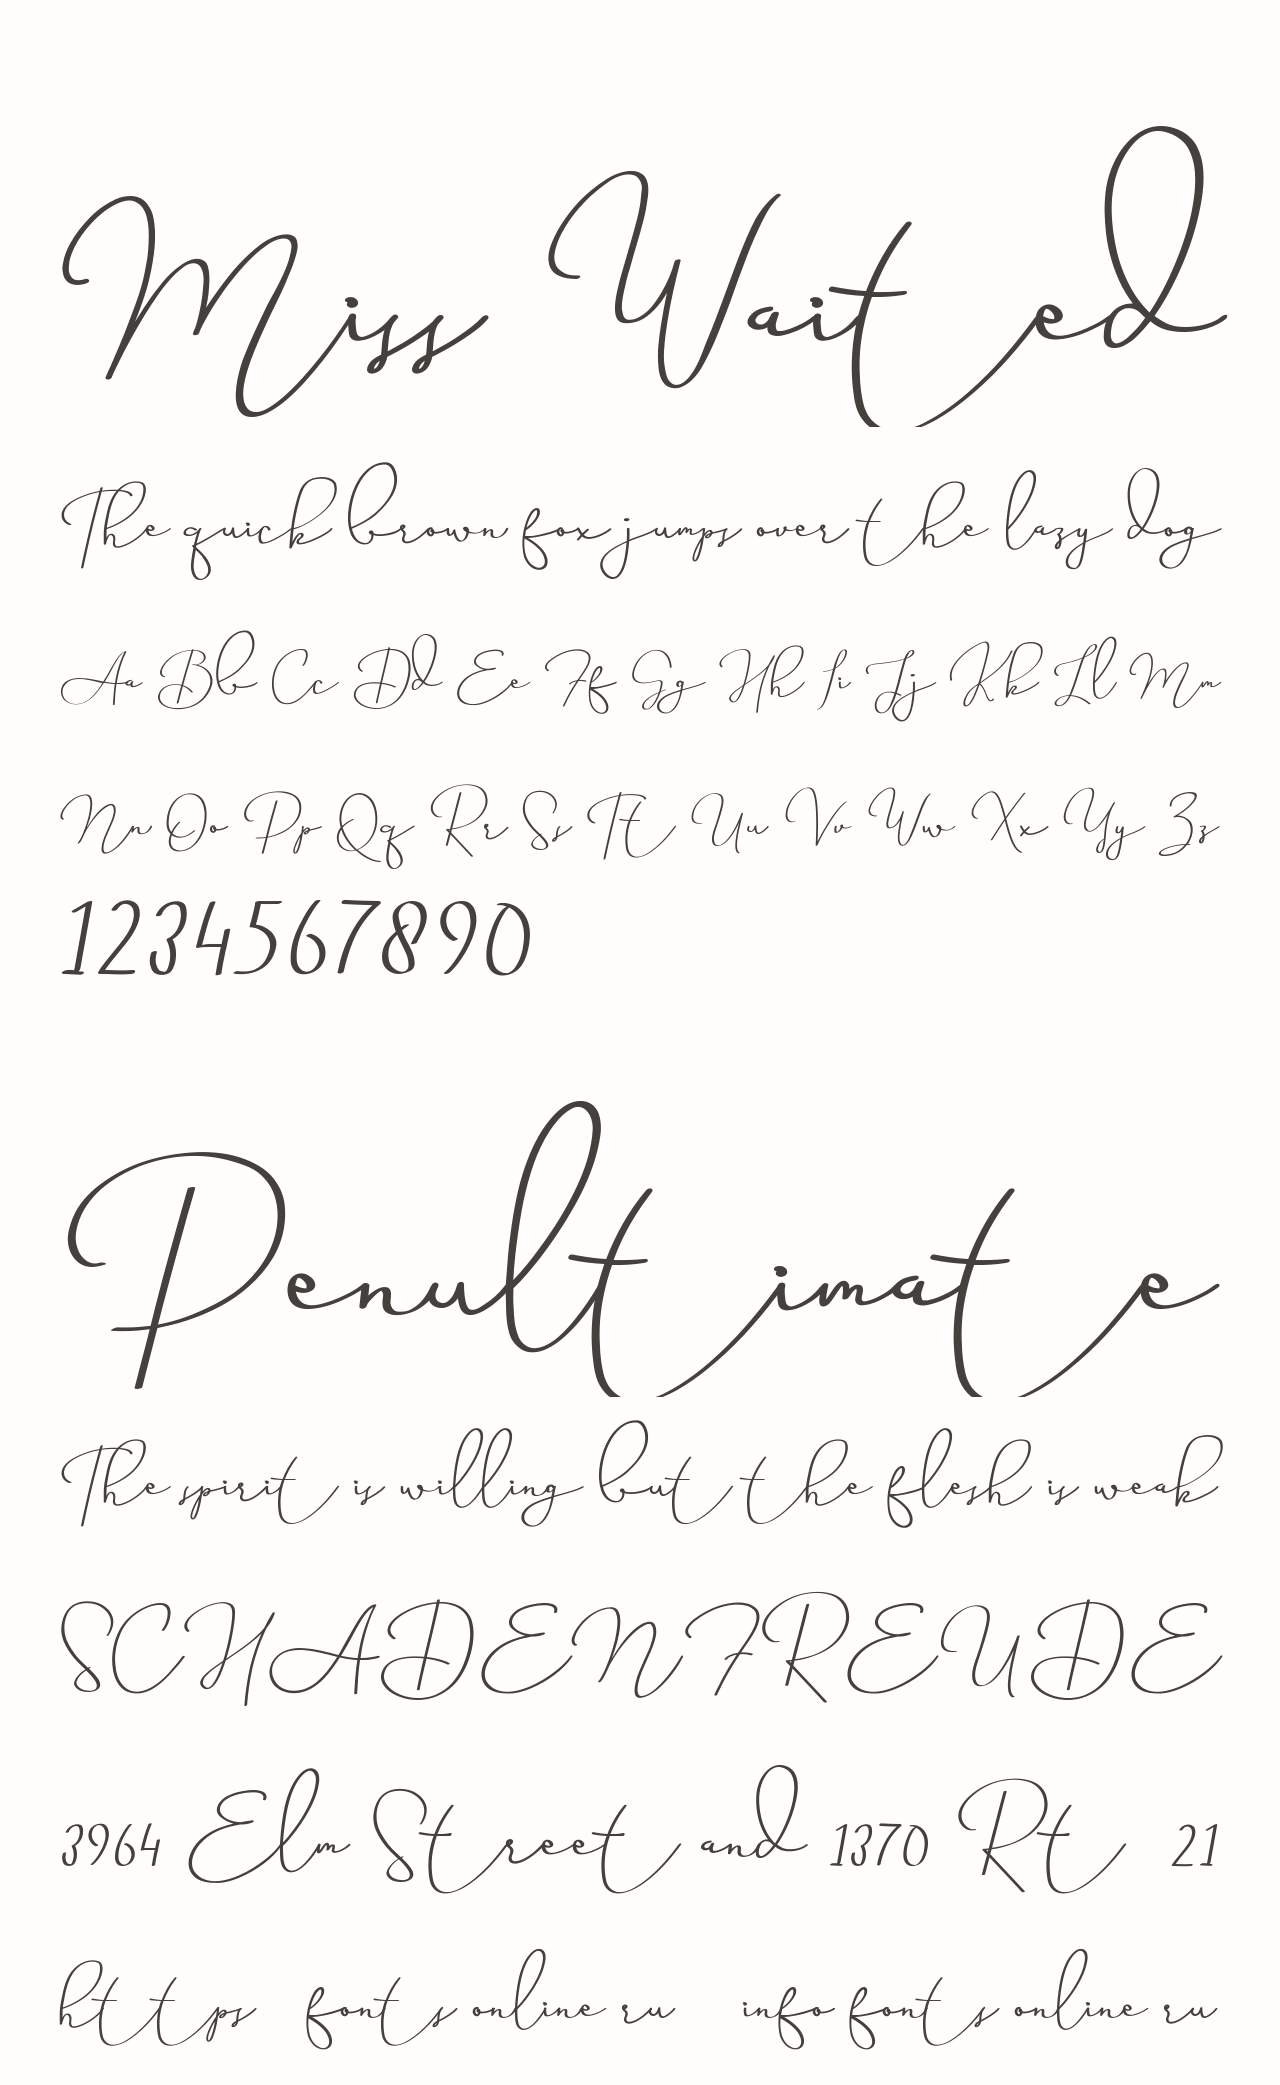 Miss Waited
The quick brown fox jumps over the lazy dog
Aa Bb Cc Dd Ee Ff Gg Hh Ii Jj Kk Ll Mm
Nn Oo Pp Qq Rr Ss Tt Uu Vv Ww Xx Yy Zz
1234567890
Penultimate
The spirit is willing but the flesh is weak
SCHADENFREUDE
3964 Elm Street and 1370 Rt 21
https fonts online ru info fonts online ru